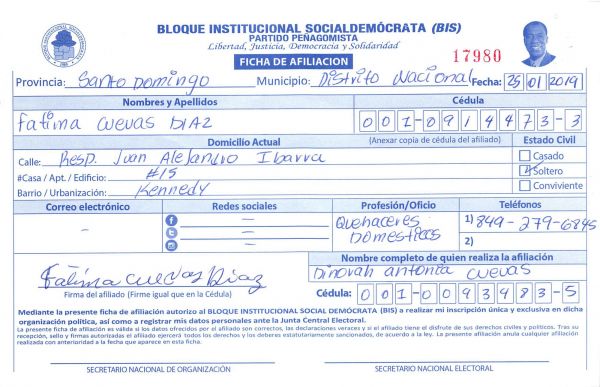 BLOQUE INSTITUCIONAL SOCIALDEMÓCRATA (BIS)
PARTIDO PEÑAGOMISTA
Libertad, Justicia, Democracia y Solidaridad
FICHA DE AFILIACION
17980
Provincia: Santo Domingo Municipio: Distrito Nacional Fecha: 25 01 2019
Nombres y Apellidos Cédula
Fatima Cuevas DIAZ 001-0914473-3
Domicilio Actual (Anexar copia de cédula del afiliado) Estado Civil
Calle: Resp. Juan Alejandro Ibarra Casado
#Casa / Apt. / Edificio: #15 Soltero
Barrio / Urbanización: Kennedy Conviviente
Correo electrónico Redes sociales Profesión/Oficio Teléfonos
- — Quehaceres 1) 849-279-6845
— Domesticos 2)
—
Nombre completo de quien realiza la afiliación
Dinorah antonia cuevas
Fatima Cuevas Diaz
Firma del afiliado (Firme igual que en la Cédula) Cédula: 001-0093983-5
Mediante la presente ficha de afiliación autorizo al BLOQUE INSTITUCIONAL SOCIAL DEMÓCRATA (BIS) a realizar mi inscripción única y exclusiva en dicha
organización política, así como a registrar mis datos personales ante la Junta Central Electoral.
La presente ficha de afiliación es válida si los datos ofrecidos por el afiliado son correctos, las declaraciones veraces y si el afiliado tiene el disfrute de sus derechos civiles y políticos. Tras su
recepción, sello y firmas autorizadas el afiliado ejercerá todos los derechos y los deberes estatutariamente sancionados, de acuerdo a la ley. La presente afiliación anula cualquier afiliación
realizada con anterioridad a la fecha que aparece en esta ficha.
SECRETARIO NACIONAL DE ORGANIZACIÓN SECRETARIO NACIONAL ELECTORAL